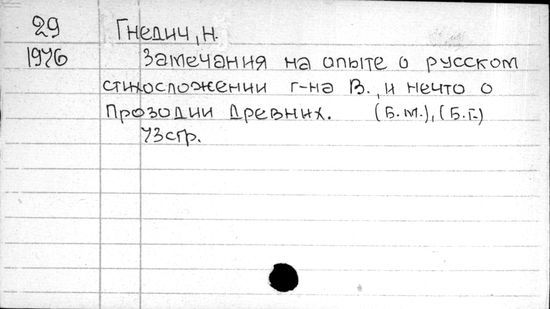 29 Гнедич, Н.
1976 Замечания на опыте о русском
стихосложении г-на В., и нечто о
Прозодии Древних. (Б.М.), (Б.Г.)
43стр.